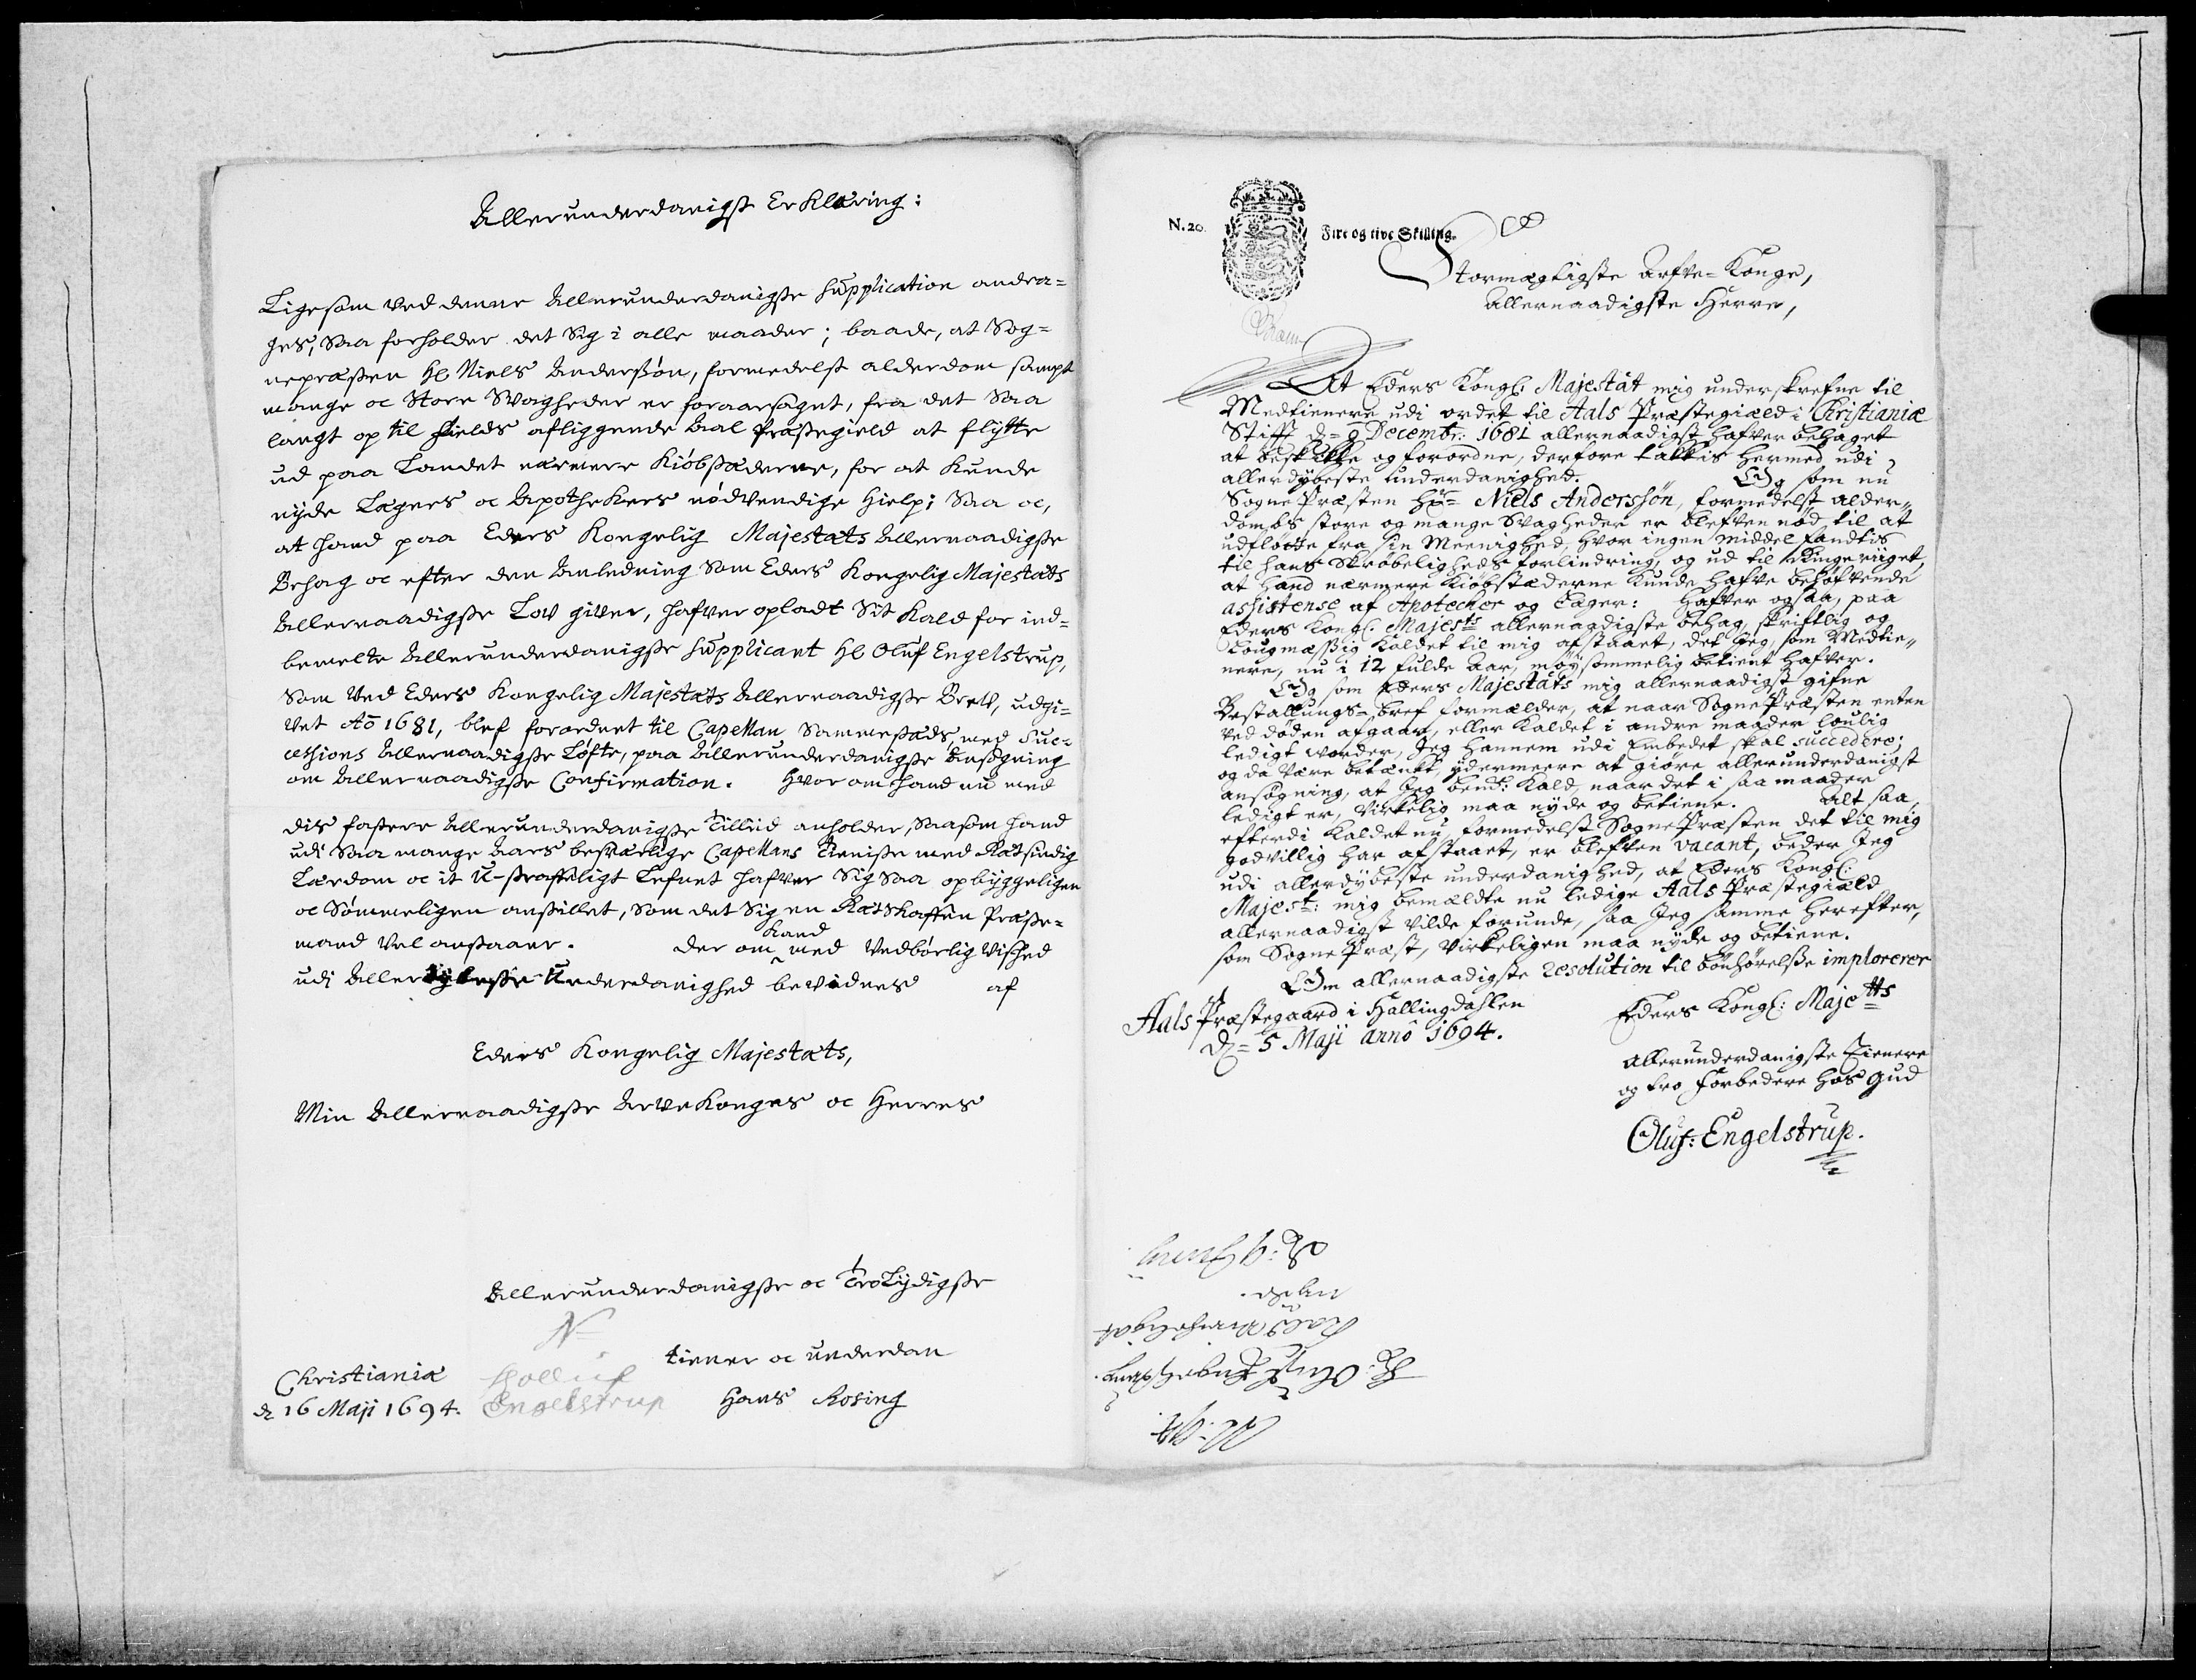 Allerunderdanigst Erklæring:
Ligesom ved denne Allerunderdanigste Supplication andra=
ges, saa forholder det Sig i alle maader; baade, at Sog=
nepræsten Hr Niels Anderssøn, formedelst alderdom sampt
mange oc Store Svagheder er foraarsaget, fra det Saa
langt op til fields afliggende Aal Præstegield at flytte
ud paa Landet nærmere Kiøbstæderne, for at Kunde
nyde Lægers oc Apothekers nødvendige Hielp; Saa oc,
at hand paa Eders Kongelig Majestæts Allernaadigste
Behag oc efter den Anledning Som Eders Kongelig Majestæts
Allernaadigste Lov giver, hafver opladt Sit Kald for ind=
bemelte Allerunderdanigste Supplicant Hr Oluf Engelstrup,
Som ved Eders Kongelig Majestæts Allernaadigste Brev, udgi=
vet Ao 1681, blef forordnet til Capellan Sammestæds, med Suc=
cessions Allernaadigste Løfte, paa Allerunderdanigste Ansøgning
om Allernaadigste Confirmation. Hvor om hand nu med
dis fastere Allerunderdanigste Tillid anholder, Saasom hand
udi Saa mange Aars besværlige Capellans Tieniste med Retsindig
Lærdom oc it U-straffeligt Lefnet hafver Sig Saa opbyggeligen
oc Sømmeligen anstillet, Som det Sig en Retskaffen Præste=
mand vel anstaaer. Der om kand med vedbørlig vished
udi Allerdybeste Underdanighed bevidnes af
Eders Kongelig Majestæts,
Min Allernaadigste Arve Konges oc Herres
Allerunderdanigste oc Troelydigste
tiener oc underdan
Christiania
d 16 Maji 1694.
Engelstrup
Hans Rosing
N. 20.
Fire og tive Skilling.
Stormægtigste Arfve=Konge,
Allernaadigste Herre,
At Eders Kongl: Majestät mig underskrefne til
Medtienere udi ordet til Aals Præstegiæld i Christianiæ
Stifft d= 9 Decembr: 1681 allernaadigst hafver behaget
at beskikke og forordne, derfore takkis hermed udi
allerdybeste underdanighed. Og som nu
Sogne Præsten Hr= Niels Anderssøn, formedelst alder„
dombs store og mange Svagheder er blefven nød til at
udfløtte fra sin Meenighed, hvor ingen middel fandtis
til hans Skrøbeligheds forlindring, og ud til Ringeriiget,
at hand nærmere kiøbstæderne kunde hafve behøfvende
assistense af Apotecker og Læger: Hafver ogsaa, paa
Eders Kongl: Majestts allernaadigste behag, skriftlig og
Lougmæssig Kaldet til mig afstaaet, det Jeg, som Medtie„
nere, nu i 12 fulde Aar, møysommelig betient hafver.
Og som Eders Majestäts mig allernaadigst gifne
Bestallungs=bref formælder, at naar Sogne Præsten enten
ved døden afgaaer, eller Kaldet i andre maader loulig
ledigt vorder, Jeg hannem udi Embedet skal succedere;
og da være betænkt, ydermeere at giøre allerunderdanigst
ansøgning, at Jeg bemte: Kald, naar det i saa maader
ledigt er, virkelig maa nyde og betiene. Alt saa,
efterdi Kaldet nu, formedelst Sogne Præsten det til mig
godvillig har afstaaet, er blefven vacant, beder Jeg
udi allerdybeste underdanighed, at Eders Kongl:
Majest: mig bemældte nu ledige Aals Præstegiæld
allernaadigst vilde forunde, saa Jeg samme herefter,
som Sogne Præst, virkeligen maa nyde og betiene.
Om allernaadigste resolution til bønhørelse implorerer
Aals Præstegaard i Hallingdahlen
d= 5 Maji anno 1694.
Eders Kongl: Majetts
Allerunderdanigste Tienere
og tro forbedere hos Gud
Oluf: Engelstrup.